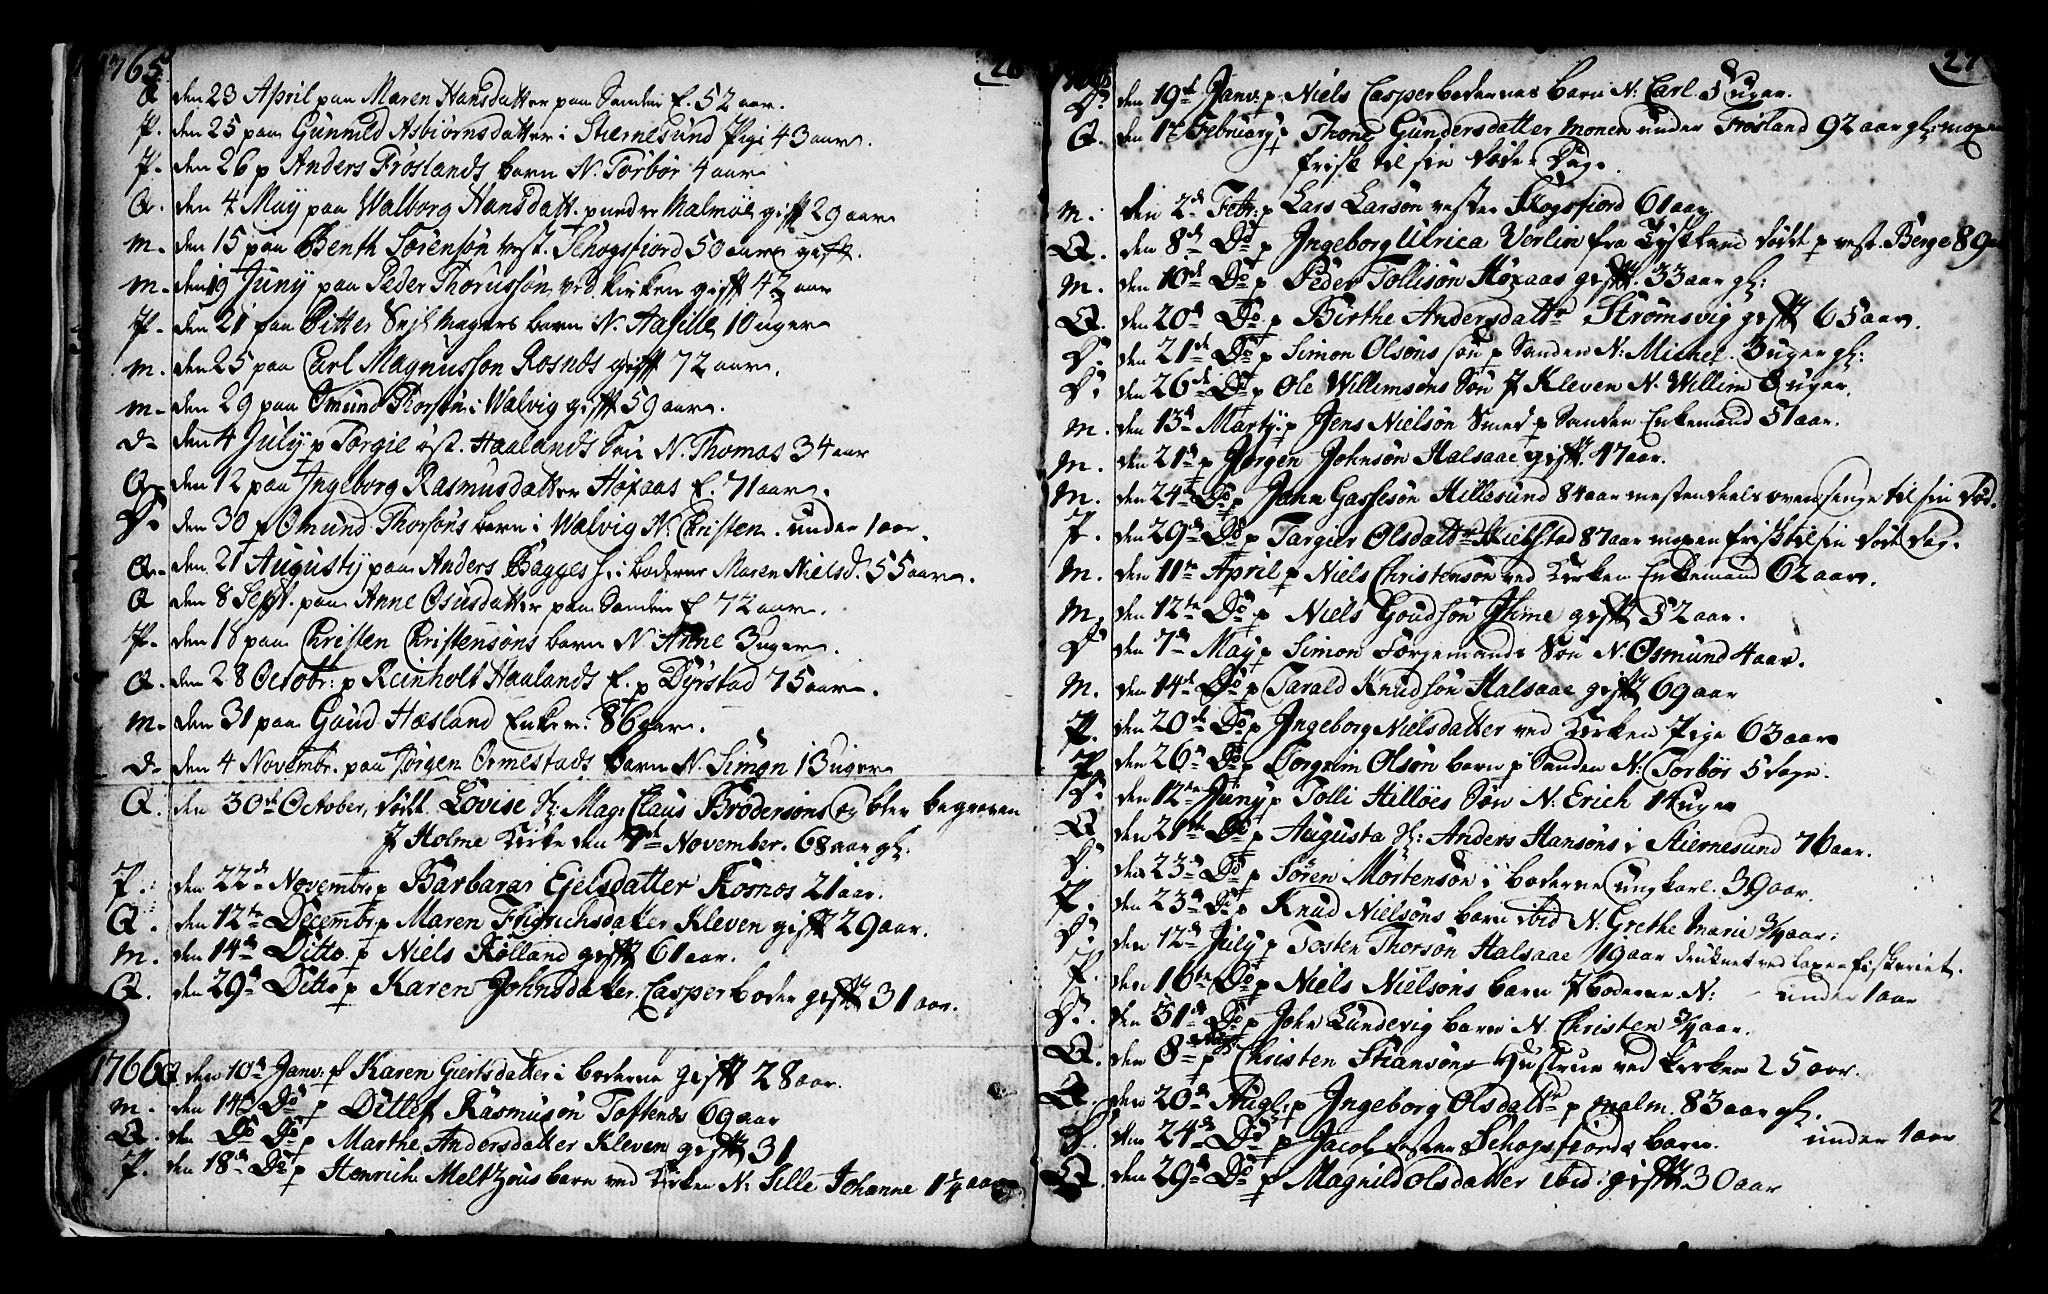 1765
26
Q den 23 April paa Maren Hansdatter paa Sanden E. 52 aar.
P. den 25 paa Gunnild Asbiørnsdatter i Stiernesund Pigi 43 aar.
P. den 26 p Anders Frøslands barn N. Torbør 4 aar
Q. den 4 May paa Walborg Hansdatt. p nedre Malmøe gift 29 aar
M. den 15 paa Benth Sørensøn vest. Schogsfiord 50 aar gift.
M. den 19 Juny paa Peder Thorussøn ved Kirken gift 42 aar
P. den 21 paa Pitter barn N. Aasille 10 uger
M. den 25 paa Carl Magnussøn Rosnes gift 72 aar.
M. den 29 paa Omund Thorsøn i Walvig gift 59 aar.
D. den 4 July p Torgie øst. Haalands N. Thomas 34 aar
Q. den 12 paa Ingeborg Rasmusdatter Høxaas E. 71 aar.
D. den 30 p Omund Thorsøns barn i Walvig N. Christen. under 1 aar.
Q. den 21 Augusty paa Anders Bagges H. i boderne Maren Nielsd. 55 aar.
Q den 8 Sept. paa Anne Osusdatter paa Sanden E 72 aar.
P. den 18 paa Christen Christensøns barn N. Anne 3 uger.
Q. den 28 Octobr: p Reinholt Haalands E. p Dyrstad 75 aar.
M. den 31 paa Goud Hæsland Enkem: 86 aar.
D. den 4 Novembr. paa Jørgen Ormestads barn N. Simon 13 uger
Q. den 30te October, døde Lovise Sl: Mag: Claus Brodersøns og blev begraven
J Holme Kirke den 7de November. 68 aar gl.
P. den 22de Novembr p Barbara Ejelsdatter Rosnos 21 aar.
Q. den 12te Decembr p Maren Fridrichsdatter Kleven gift 29 aar.
M. den 14de Ditto. p Niels Rølland gift 61 aar.
Q. den 29de Ditto p Karen Johnsdatter. Casperboder gift 31 aar.
1766 Q den 10de Janv: p Karen Giertsdatter i boderne gift 28 aar.
M. den 14de Do p Ditlef Rasmusøn Toftenes 69 aar
Q. den Do Do p Marthe Andersdatter Kleven gift 31
P. den 18de Do p Henrich Meltzous barn ved Kirken N: Sille Johanne 1 1/4 aar
1766
27
D. den 19de Janv: p Niels Casperbodernes barn N: Carl. 5 uger.
Q. den 1te February p Thone Gundersdatter Monen under Frøsland 92 aar gl: mopen
frisk til sin døde Dag.
M. den 2de Febr: p Lars Larsøn vester Skogsfiord 61 aar
Q. den 8de Do p Ingeborg Ulrica Verlin fra Tyskland født p vest. Berge 89
M. den 10de Do p Peder Tollisøn Høxaas gift. 33 aar gl:
Q. den 20de Do p Birthe Andersdattr Strømsvig gift 65 aar.
D. den 21de Do p Simon Olsøns søn p Sanden N: Michel 3 uger gl:
D. den 26de Do p Ole Willimsøns Søn J Kleven N. Willim 8 uger.
M. den 13de Marty: p Jens Nielsøn Smed p Sanden Enkemand 51 aar.
M. den 21de p Jørgen Johnsøn Halsaae gift. 47 aar.
M. den 24de Do p Jann Gassesøn Hillesund 84 aar mestendeels oven senge til sin død.
P. den 29de Do p Targier Olsdattr Skiebstad 87 aar mopen frisk til sin døde Dag.
M. den 11te April p Niels Christensøn ved Kirken Enkemand 62 aar.
M. den 12te Do p Niels Goudsøn Ihme gift 52 aar.
D den 7de May p Simon Færgemands Søn N. Osmund 4 aar.
M. den 14de Do p Tarald Knudsøn Halsaae gift 69 aar
P. den 20de Do p Ingeborg Nielsdatter ved Kirken Pige 63 aar
P. den 26de Do p Torgrim Olsøn barn p Sanden N: Torbør 5 dage.
D. den 12te Juny p Tolli Hilløes Søn N. Erich 14 uger
Q. den 21de Do p Augusta Sl: Anders Hansøns i Stiernesund 76 aar.
D. den 23de Do p Søren Mortensøn i boderne ungkarl. 39 aar.
P. den 23de Do p Knud Nielsøns barn ibid N. Grethe Marie 3/4 aar:
D. den 12te July p Tosten Thorsøn Halsaae 19 aar druknet ved Laxen fiskeriet.
P. den 16te Do p Niels Nielsøns barn J boderne N: - under 1 aar
D. den 31de Do p John Lundevig barn N. Christen 3/4 aar.
Q. den 8de Aug: p Christen Stiansøns Hustrue ved Kirken 25 aar.
Q. den 20de Augl: p Ingeborg Olsdattr p Malm. 83 aar gl.
D. den 24de Do p Jacob Schogsfiords barn. under 1 aar
Q. den 29de Do p Magnild Olsdatter ibid: gift. 30 aar